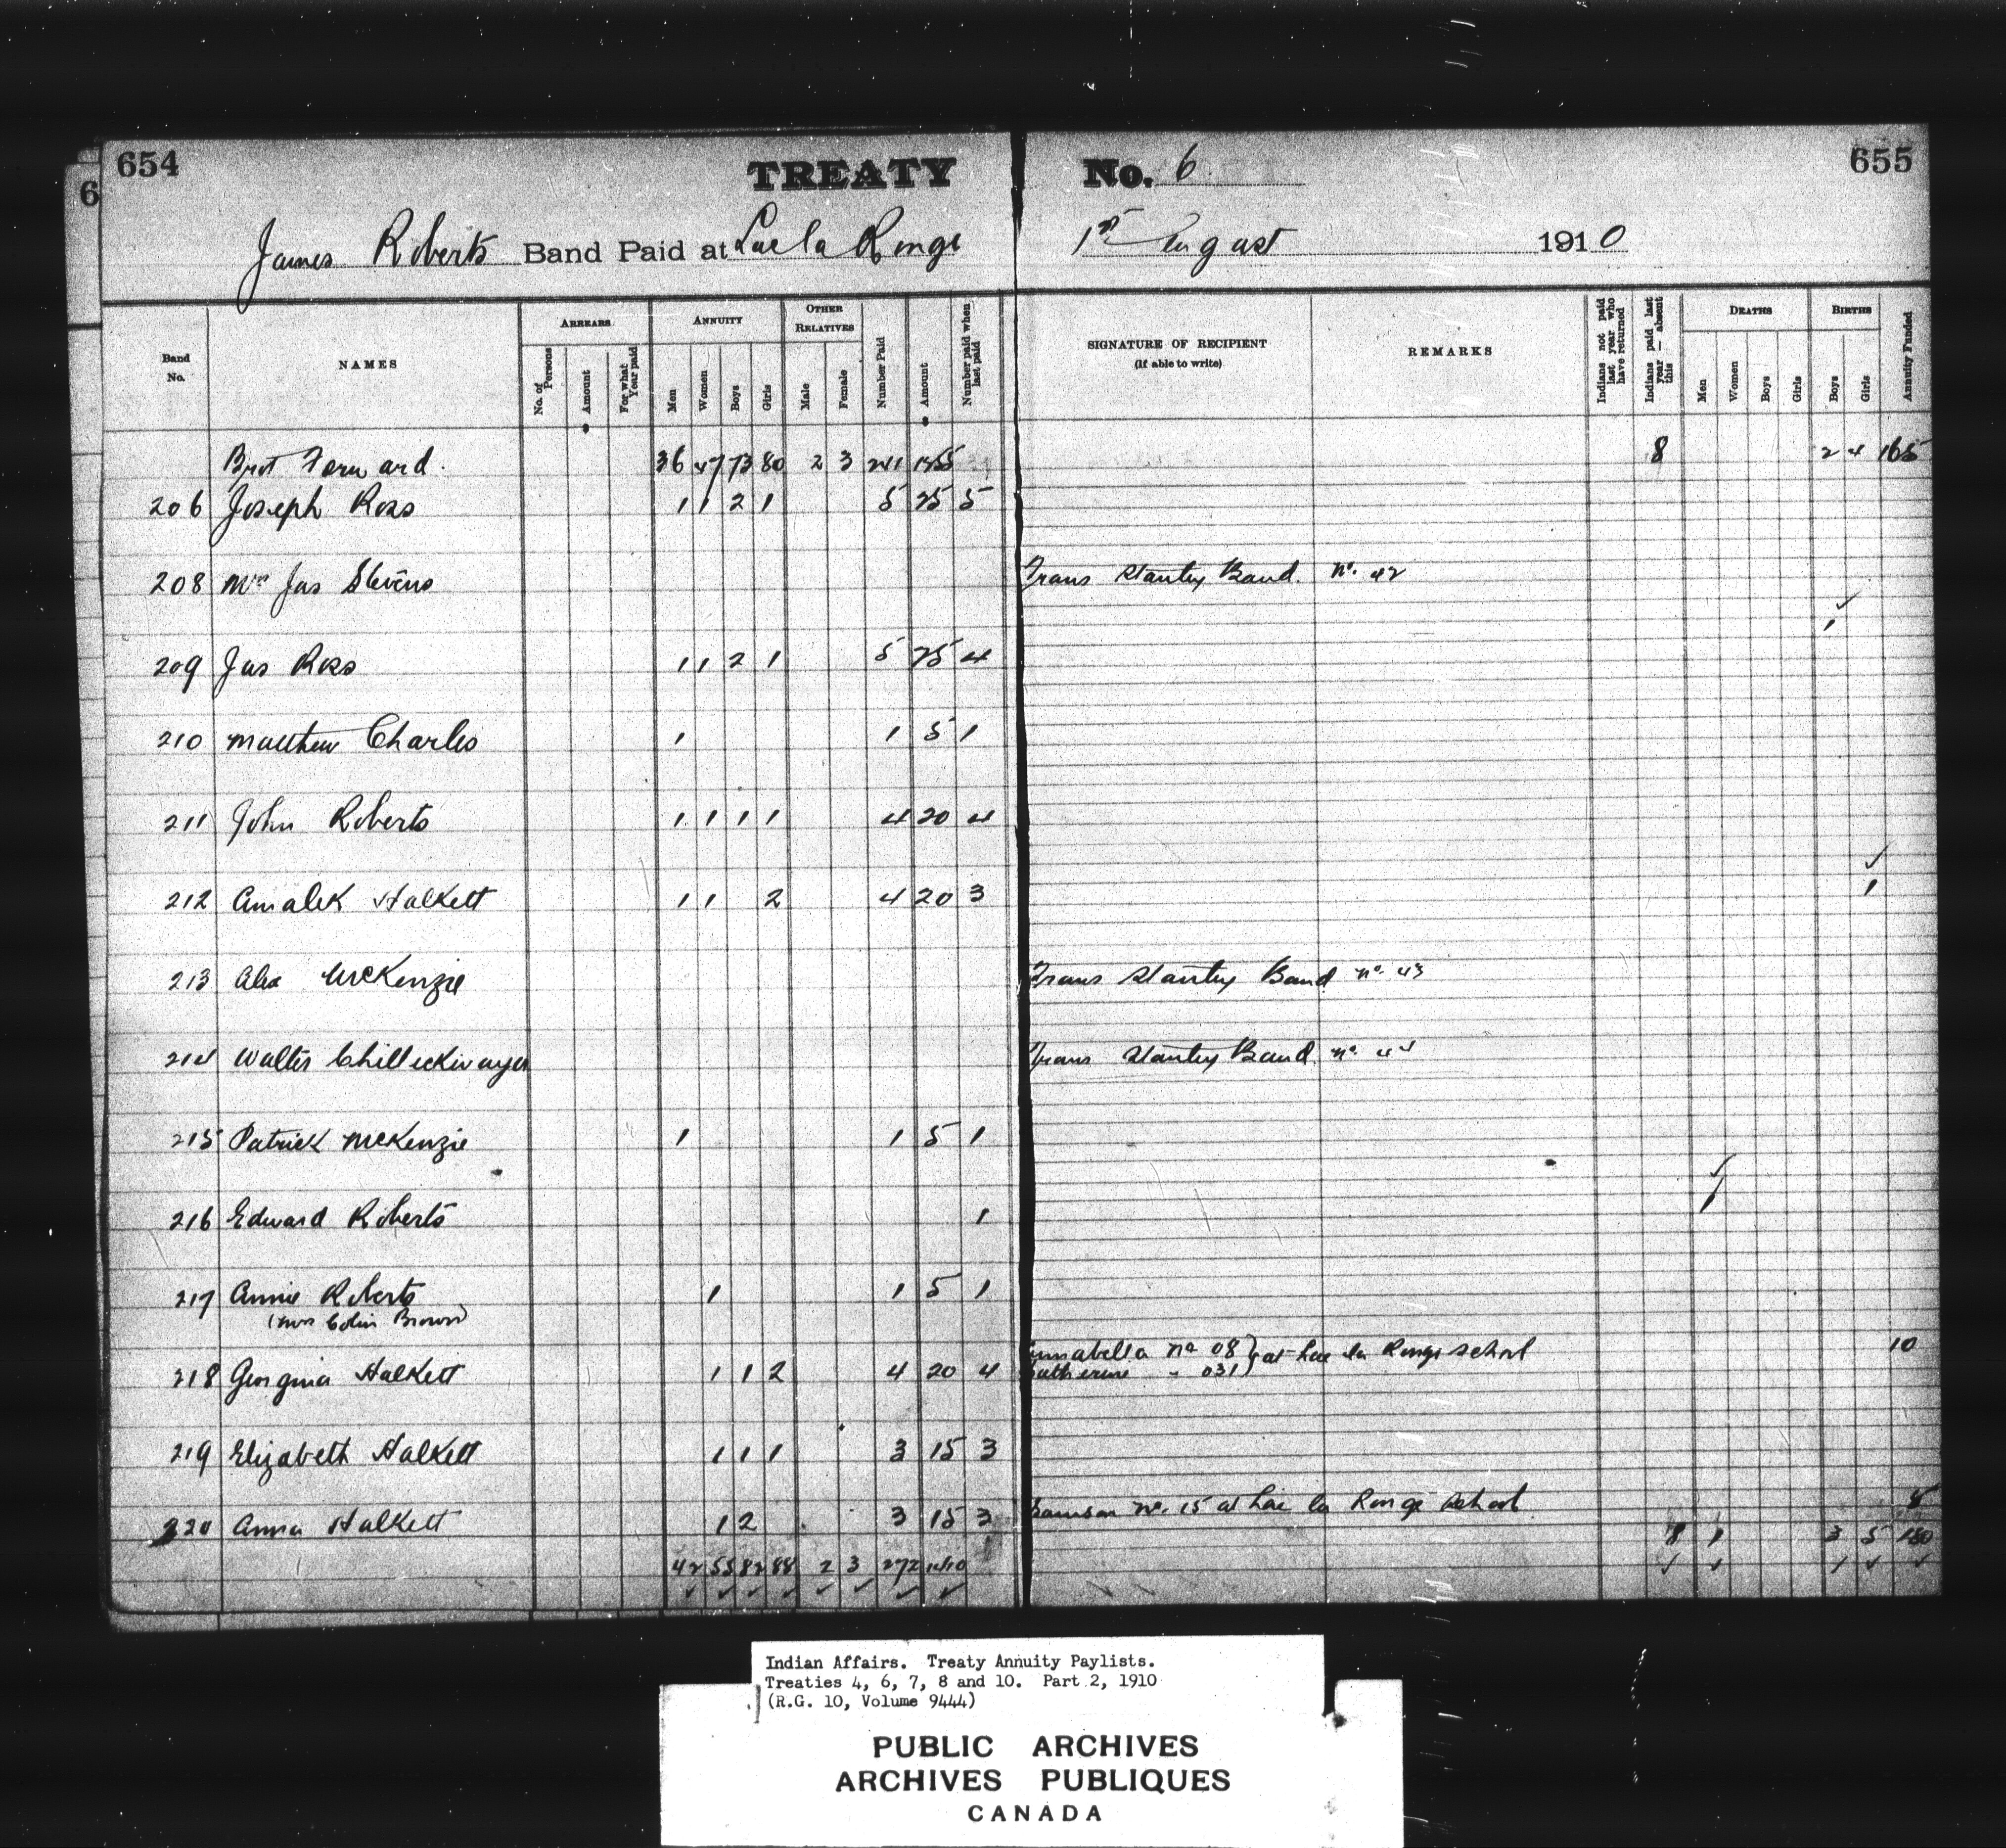 654 TREATY No. 6 655
6
James Roberts Band Paid at Lac la Ronge 1st August 1910
Band No. NAMES ARREARS No. of Persons Amount For what Year paid ANNUITY Men Women Boys Girls OTHER RELATIVES Male Female Number Paid Amount Number paid when last paid SIGNATURE OF RECIPIENT (if able to write) REMARKS Indians not paid last year who have returned Indians paid last year — absent this DEATHS Men Women Boys Girls BIRTHS Boys Girls Annuity Funded
Brot Forward. 36 47 73 80 2 3 241 1255 8 2 4 165
206 Joseph Ross 1 1 2 1 5 25 5
208 Mrs Jas Stevens Trans Stanley Band. No. 42
209 Jas Ross 1 1 2 1 5 25 4 1
210 Matthew Charles 1 1 5 1
211 John Roberts 1 1 1 1 4 20 4
212 Amalek Halkett 1 1 2 4 20 3 1
213 Alex McKenzie Trans Stanley Band No. 43
214 Walter Trans Stanley Band No. 44
215 Patrick McKenzie 1 1 5 1
216 Edward Roberts 1 1
217 Annie Roberts 1 1 5 1
(Mrs Colin Brown)
218 Georgina Halkett 1 1 2 4 20 4 Annabella No 08 } at Lac la Ronge school 10
Catherine " 031
219 Elizabeth Halkett 1 1 1 3 15 3
220 Anna Halkett 1 2 3 15 3 Samson No. 15 at Lac la Ronge School 5
8 1 3 5 180
42 55 82 88 2 3 272 1410
Indian Affairs. Treaty Annuity Paylists.
Treaties 4, 6, 7, 8 and 10. Part 2, 1910
(R.G. 10, Volume 9444)
PUBLIC ARCHIVES
ARCHIVES PUBLIQUES
CANADA